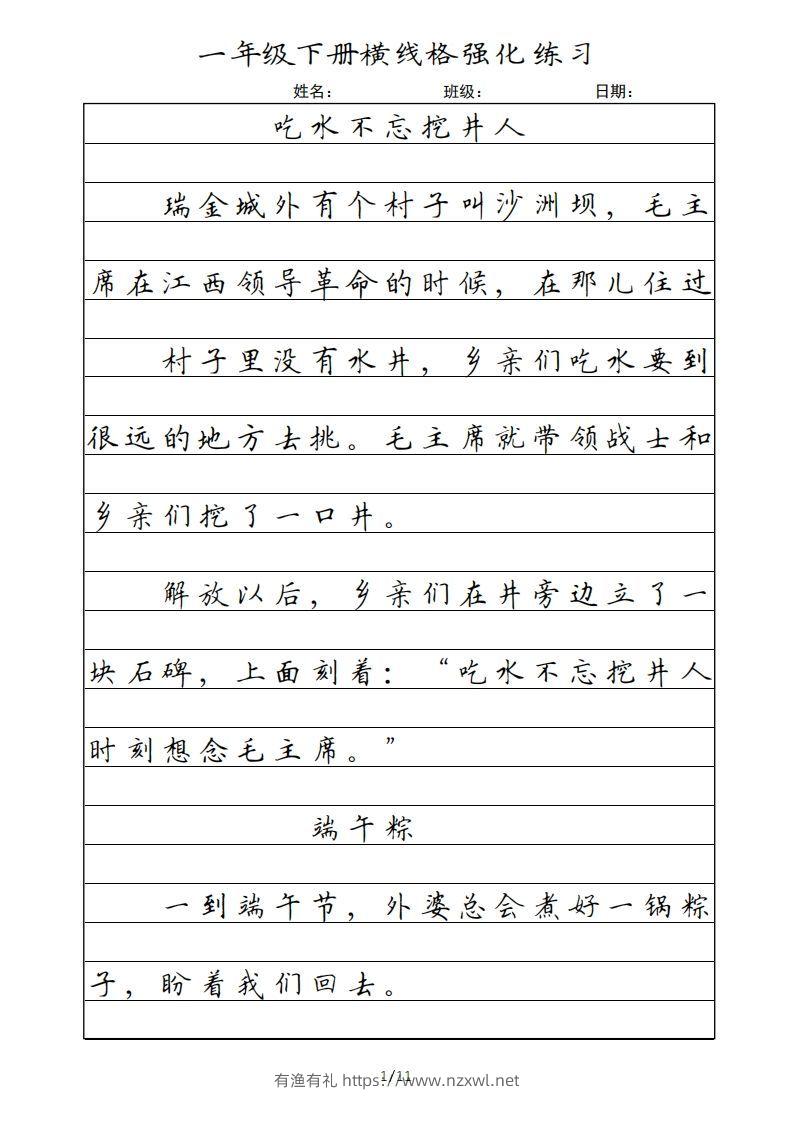 一年级下册横线格强化练习
姓名： 班级： 日期：
吃水不忘挖井人
瑞金城外有个村子叫沙洲坝，毛主
席在江西领导革命的时候，在那儿住过
村子里没有水井，乡亲们吃水要到
很远的地方去挑。毛主席就带领战士和
乡亲们挖了一口井。
解放以后，乡亲们在井旁边立了一
块石碑，上面刻着：“吃水不忘挖井人
时刻想念毛主席。”
端午粽
一到端午节，外婆总会煮好一锅粽
子，盼着我们回去。
1/11
有渔有礼 https://www.nzxwl.net